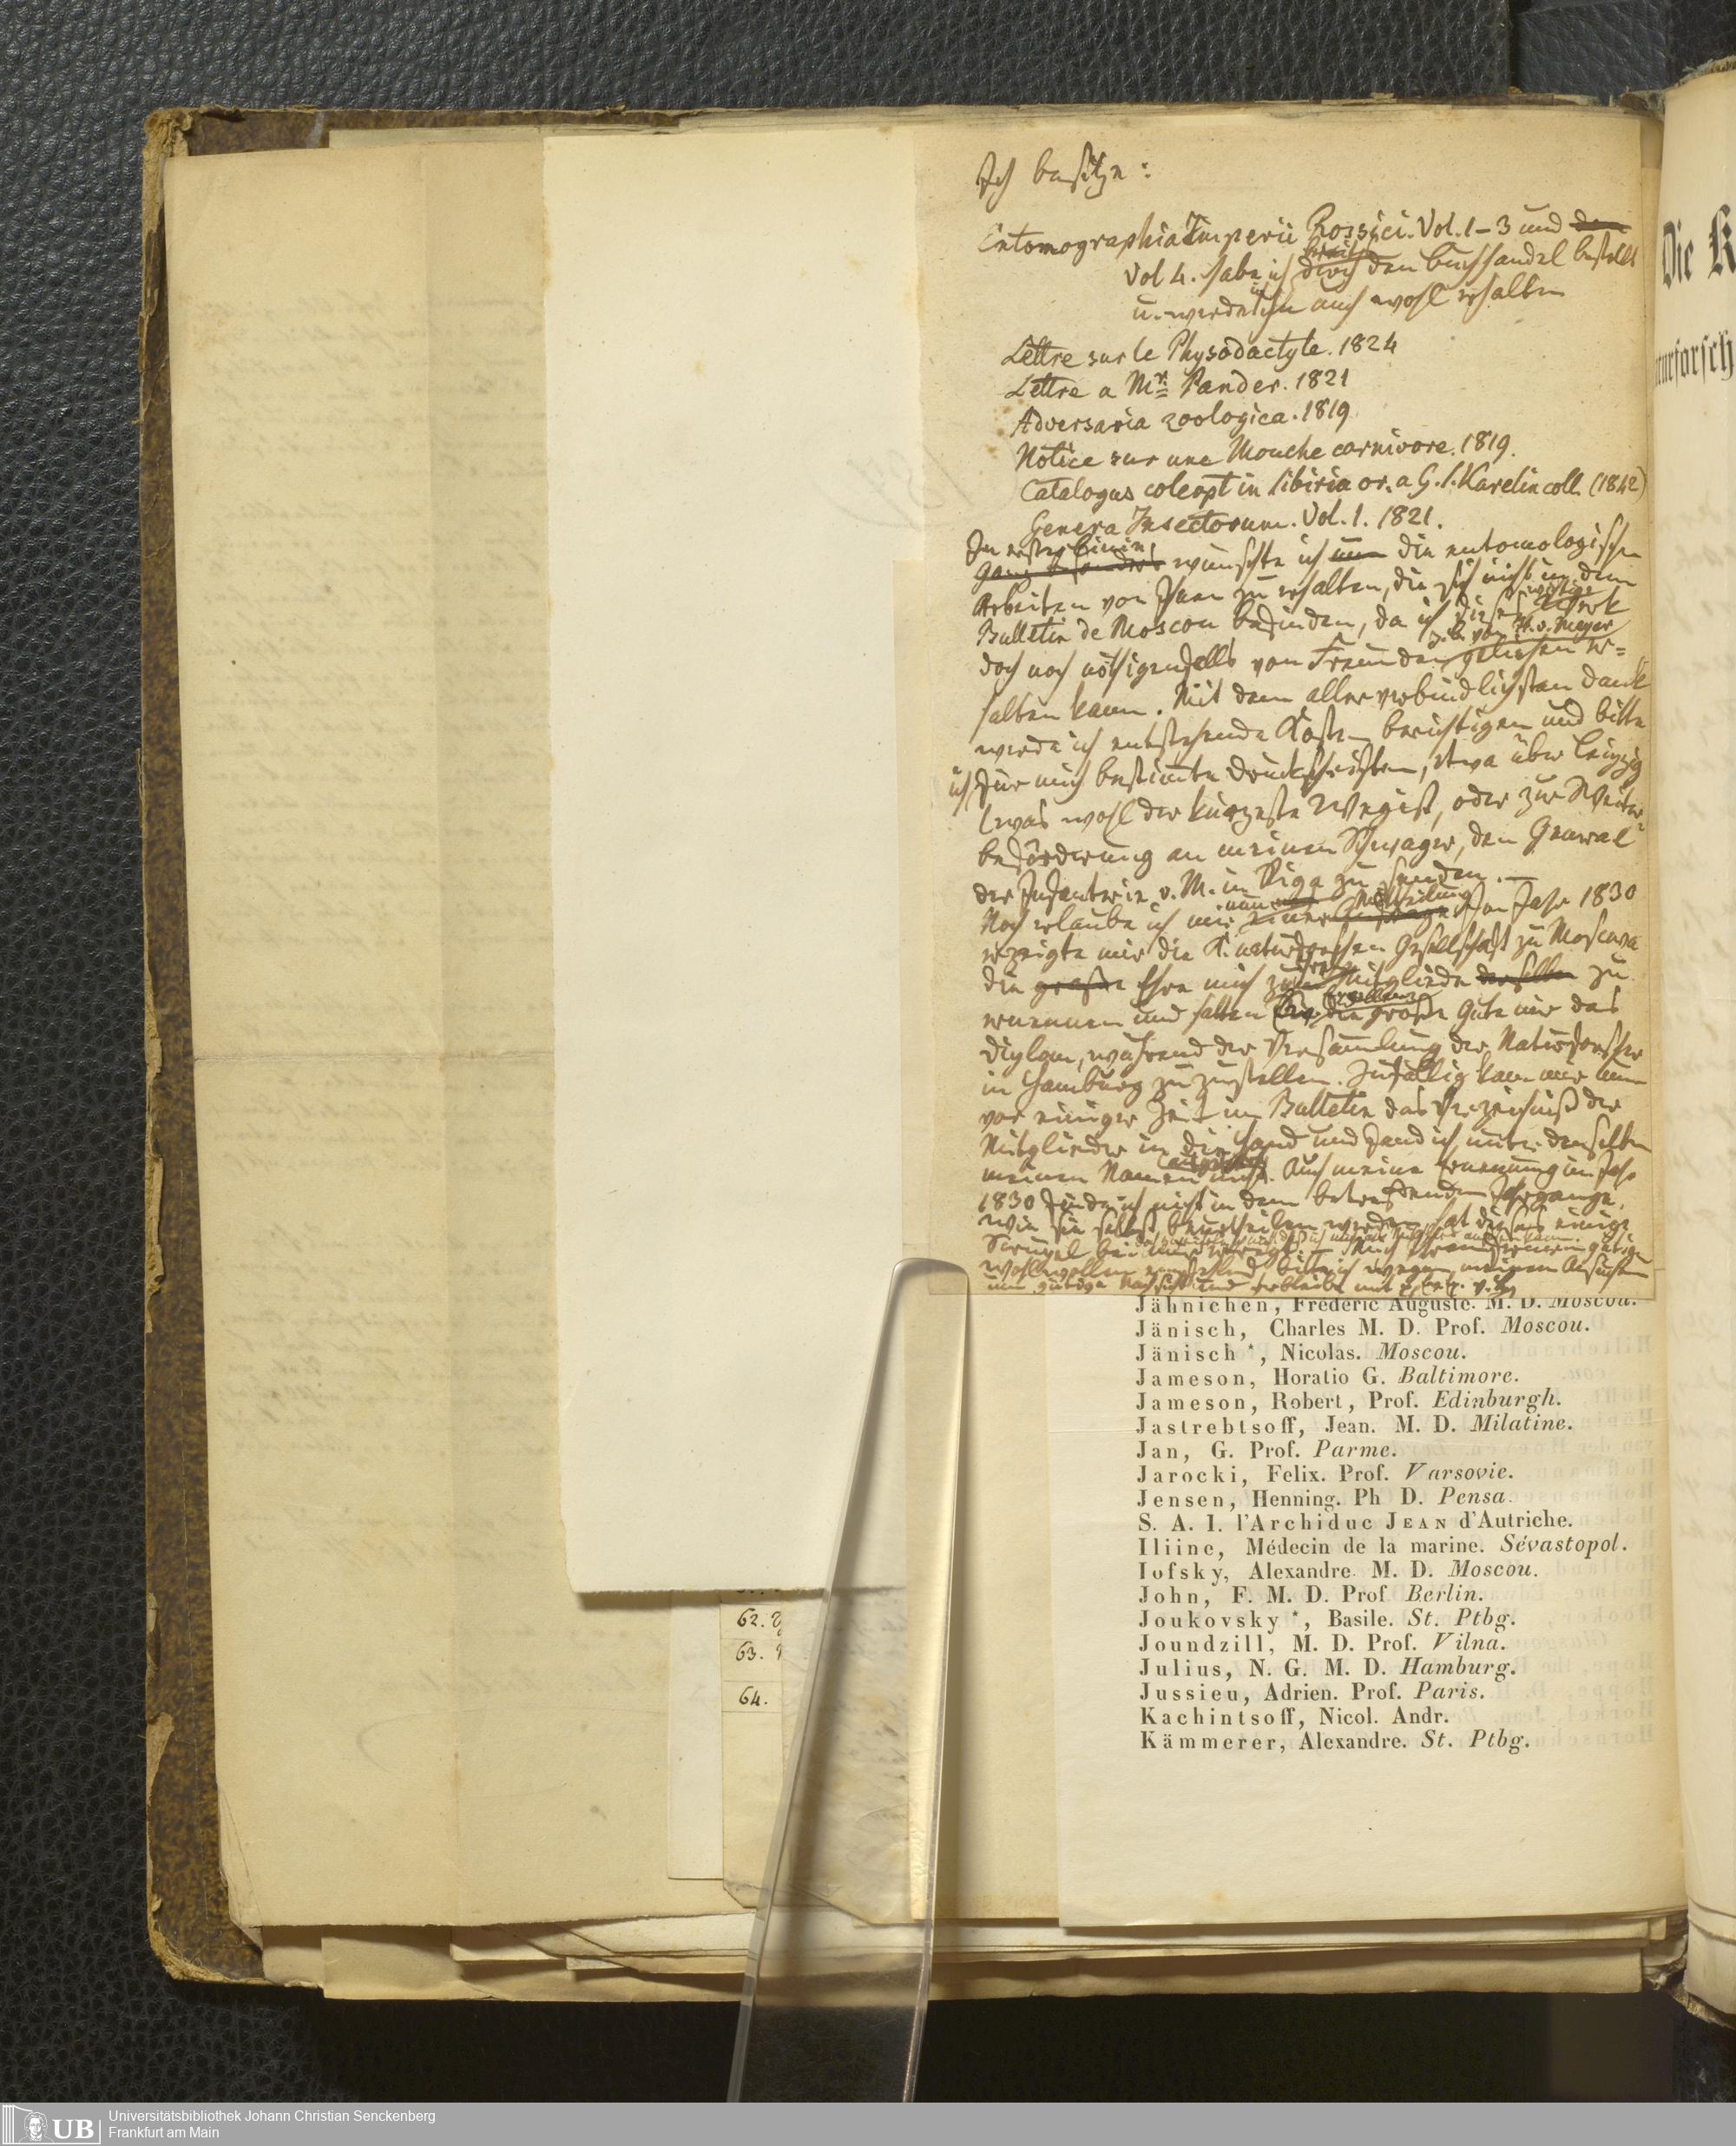 Ich besitze:
Entomographia Imperii Rossici. Vol. 1–3 und
Vol 4. habe ich durch den Buchhandel bestellt
u. werde ihn auch wohl erhalten
Lettre sur le Physodactyle. 1824
Lettre a Mr. Pander. 1821
Adversaria zoologica. 1819
Notice sur une Mouche carnivore. 1819.
Catalogus coleopt in Sibiria or. a G. S. Karelin coll. (1842)
Genera Insectorum. Vol. 1. 1821.
wünschte ich die entomologischen
Arbeiten von Ihnen zu erhalten, die sich nicht in dem
wichtige
Bulletin de Moscou befinden, da ich dieses Werk
z. B. von H. v. Meyer
doch noch nöthigenfalls von Freunden geliehen er=
halten kann. Mit dem allerverbindlichsten Dank
werde ich entstehende Kosten berichtigen und bitte
ich für mich bestimte Druckschriften, etwa über Leipzig
(was wohl der kürzeste Weg ist, oder zur Weiter=
beförderung an meinen Schwager, den General
der Infanterie v. M. in Riga zu senden. —
Noch erlaube ich mir Im Jahr 1830
erzeigte mir die K. naturforschen Gesellschaft zu Moscwa
die große Ehre mich zum Mitgliede derselben zu
ernennen und hatten die große Güte mir das
Diplom, während der Versammlung der Naturforscher
in Hamburg zuzustellen. Zufällig kam mir nun
vor einiger Zeit im Bulletin das Verzeichniß der
Mitglieder in die Hand und fand ich unter denselben
meinen Namen nicht. Auch meine Ernennung im Jahr
1830 finde ich nicht in dem betreffenden Jahrgange.
Wie Sie selbst beurtheilen werden, hat dieses einige
Scrupel bei mir erregt. —
Wohlwollen empfehlend, bitte ich wegen meinem Ansuchen
um gütige Nachsicht und verbleibe mit
Jähnichen, Fréderic Auguste. M. D. Moscou.
Jänisch, Charles M. D. Prof. Moscou.
Jänisch *, Nicolas. Moscou.
Jameson, Horatio G. Baltimore.
Jameson, Robert, Prof. Edinburgh.
Jastrebtsoff, Jean. M. D. Milatine.
Jan, G. Prof. Parme.
Jarocki, Felix. Prof. Varsovie.
Jensen, Henning. Ph D. Pensa.
S. A. I. l'Archiduc JEAN d'Autriche.
Iliine, Médecin de la marine. Sévastopol.
Iofsky, Alexandre. M. D. Moscou.
John, F. M. D. Prof Berlin.
Joukovsky *, Basile. St. Ptbg.
Joundzill, M. D. Prof. Vilna.
Julius, N. G. M. D. Hamburg.
Jussieu, Adrien. Prof. Paris.
Kachintsoff, Nicol. Andr.
Kämmerer, Alexandre. St. Ptbg.
62.
63.
64.
Die K
UB
Universitätsbibliothek Johann Christian Senckenberg
Frankfurt am Main